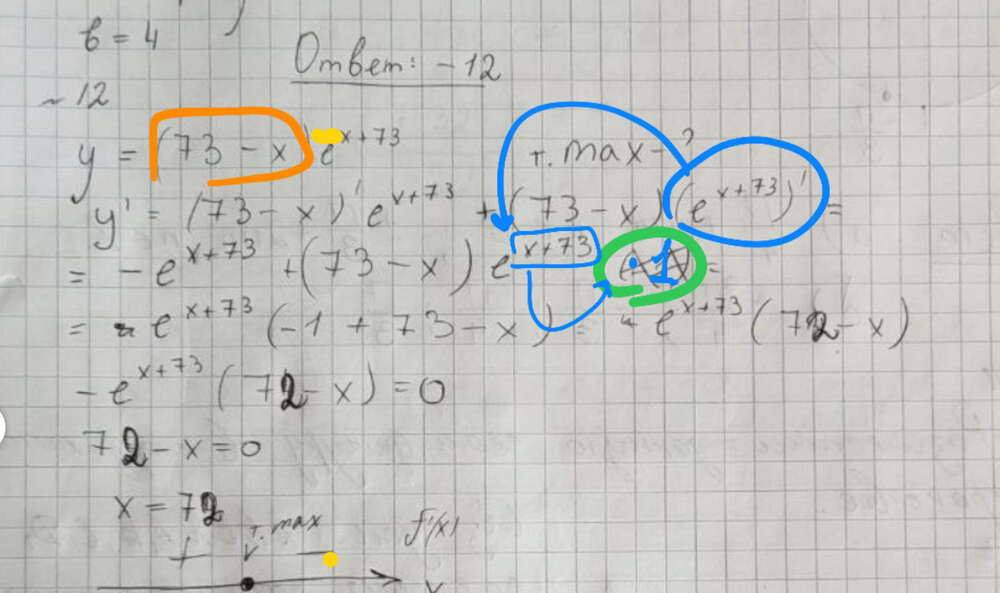 b = 4
Ответ: -12
~ 12
y = (73 - x) e^{x+73} т. max - ?
y' = (73 - x)' e^{x+73} + (73 - x) (e^{x+73})' =
= - e^{x+73} + (73 - x) e^{x+73} · 1 =
= e^{x+73} (-1 + 73 - x) = e^{x+73} (72 - x)
- e^{x+73} (72 - x) = 0
72 - x = 0
x = 72
т. max f'(x)
+ -
x